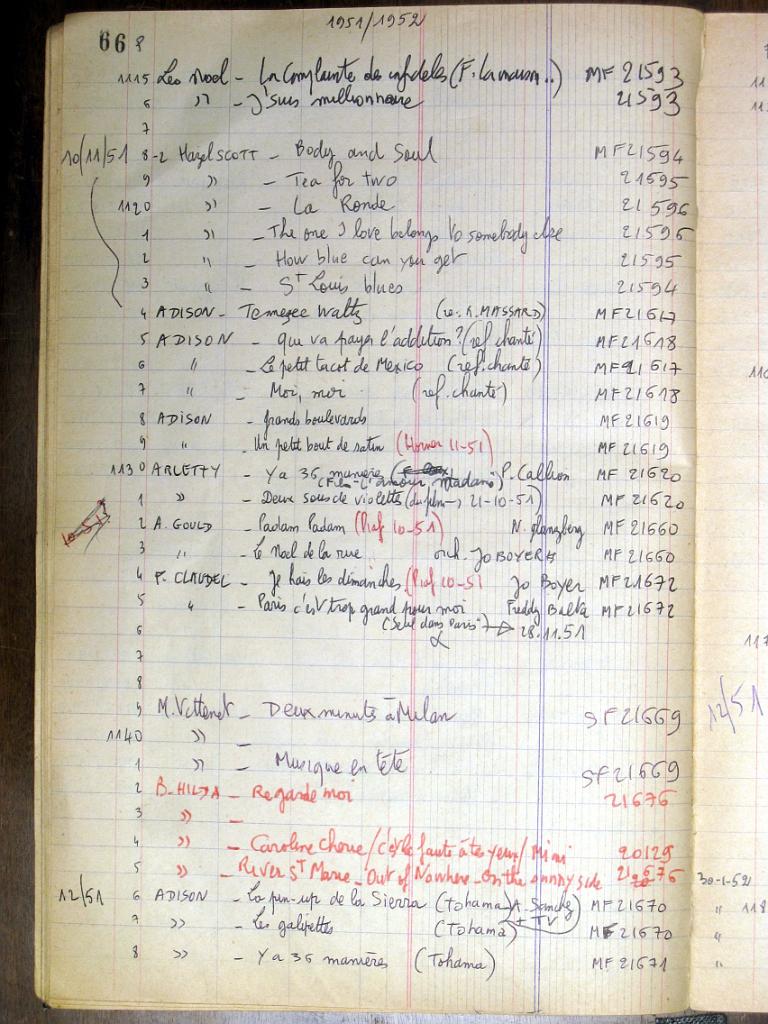 1951/1952
66
1115 Leo Noel - La Complainte des infideles (F. La maison..) MF 21593
6 " - J'suis millionnaire 21593
7
10/11/51 8-2 Hazel SCOTT - Body and Soul MF 21594
9 " - Tea for two 21595
1120 " - La Ronde 21596
1 " - The one I love belongs to somebody else 21596
2 " - How blue can you get 21595
3 " - St Louis blues 21594
4 ADISON - Tennessee Waltz (re. R. MASSARD) MF 21617
5 ADISON - que va payer l'addition? (ref. chanté) MF 21618
6 " - Le petit tacot de Mexico (ref. chanté) MF 21617
7 " - Moi, moi (ref. chanté) MF 21618
8 ADISON - grands boulevards MF 21619
9 " - Un petit bout de satin (Horner 11-51) MF 21619
1130 ARLETTY - Y a 36 manière P. Callion MF 21620
(Film - L'amour, Madame)
1 " - Deux sous de violettes (du film → 21-10-51) MF 21620
10-51
2 A. GOULD - Padam Padam (Piaf 10-51) N. glanzberg MF 21660
3 " - Le Noel de la rue orch. Jo BOYER MF 21660
4 P. CLAUDEL - Je hais les dimanches (Piaf 10-51 Jo Boyer MF 21672
5 " - Paris c'est trop grand pour moi Freddy Balta MF 21672
6 (Seul dans Paris") → 28.11.51
7
8
9 M. Vettenet - Deux minuts à Milan SF 21669
1140 " -
1 " - Musique en tête SF 21669
2 B-HILDA - Regarde moi 21676
3 " -
4 " - Caroline Cherie / c'est la faute à tes yeux / Mimi 20129
5 " - River St Marie - Out of Nowhere - On the sunny side 21676
12/51 6 ADISON - La pin-up de la Sierra (Tohama) A. Sanchez MF 21670
+ TV
7 " - Les galipettes (Tohama) MF 21670
8 " - Y a 36 manières (Tohama) MF 21671
12/51
30-1-52
"
"